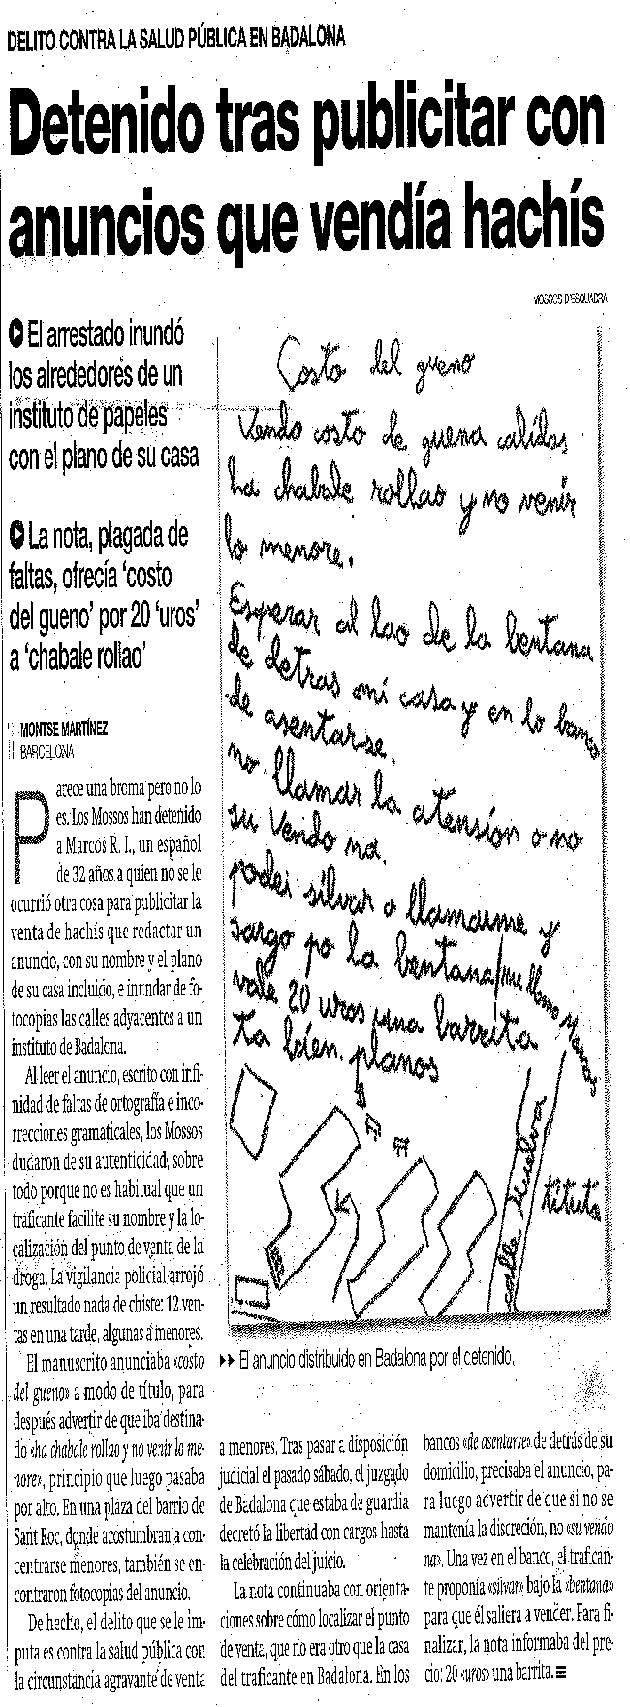 DELITO CONTRA LA SALUD PÚBLICA EN BADALONA
Detenido tras publicitar con
anuncios que vendía hachís
MOSSOS D'ESQUADRA
El arrestado inundó
los alrededores de un
instituto de papeles
con el plano de su casa
La nota, plagada de
faltas, ofrecía 'costo
del gueno' por 20 'uros'
a 'chabale rollao'
MONTSE MARTÍNEZ
BARCELONA
Parece una broma pero no lo
es. Los Mossos han detenido
a Marcos R. I., un español
de 32 años a quien no se le
ocurrió otra cosa para publicitar la
venta de hachís que redactar un
anuncio, con su nombre y el plano
de su casa incluido, e inundar de fo-
tocopias las calles adyacentes a un
instituto de Badalona.
Al leer el anuncio, escrito con infi-
nidad de faltas de ortografía e inco-
rrecciones gramaticales, los Mossos
dudaron de su autenticidad, sobre
todo porque no es habitual que un
traficante facilite su nombre y la lo-
calización del punto de venta de la
droga. La vigilancia policial arrojó
un resultado nada de chiste: 12 ven-
tas en una tarde, algunas a menores.
El manuscrito anunciaba «costo
del gueno» a modo de título, para
después advertir de que iba destina-
do «ha chabale rollao y no venir lo me-
nore», principio que luego pasaba
por alto. En una plaza del barrio de
Sant Roc, donde acostumbran a con-
centrarse menores, también se en-
contraron fotocopias del anuncio.
De hecho, el delito que se le im-
puta es contra la salud pública con
la circunstancia agravante de venta
Costo del gueno
Vendo costo de guena calidas
ha chabale rollao y no venir
lo menore.
Esperar al lao de la bentana
de detras mi casa y en lo banco
de asentarse.
no llamar la atension o no
su vendo na.
podei silvar o llamarme y
sargo po la bentana, me llamo Marcos
vale 20 uros una barrita
ta bien. planos
calle Huelva
tituta
El anuncio distribuido en Badalona por el detenido.
a menores. Tras pasar a disposición
judicial el pasado sábado, el juzgado
de Badalona que estaba de guardia
decretó la libertad con cargos hasta
la celebración del juicio.
La nota continuaba con orienta-
ciones sobre cómo localizar el punto
de venta, que no era otro que la casa
del traficante en Badalona. En los
bancos «de asentarse» de detrás de su
domicilio, precisaba el anuncio, pa-
ra luego advertir de que si no se
mantenía la discreción, no «su vendo
na». Una vez en el banco, el trafican-
te proponía «silvar» bajo la «bentana»
para que él saliera a vender. Para fi-
nalizar, la nota informaba del pre-
cio: 20 «uros» una barrita.